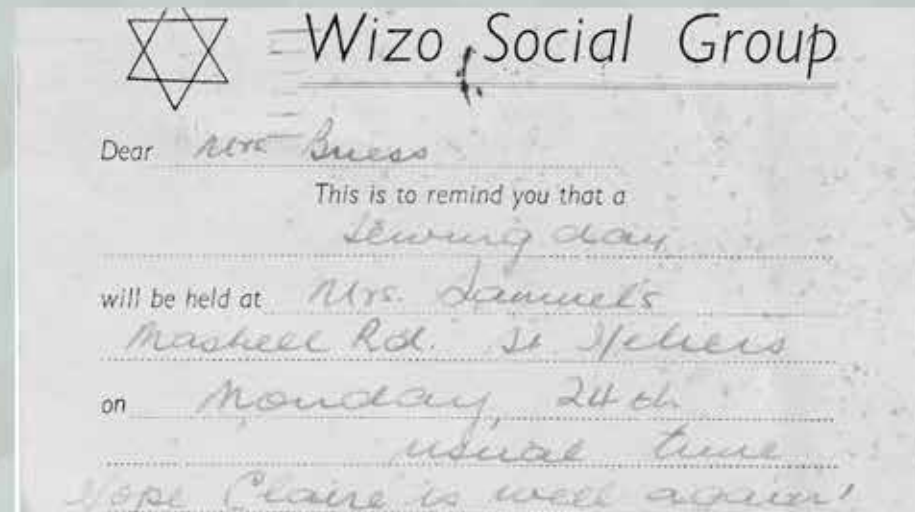 Wizo Social Group
Dear Mrs Bness
This is to remind you that a
sewing day
will be held at Mrs. Samuels
Maskell Rd. St Heliers
on Monday, 24th
usual time
Hope Claire is well again!